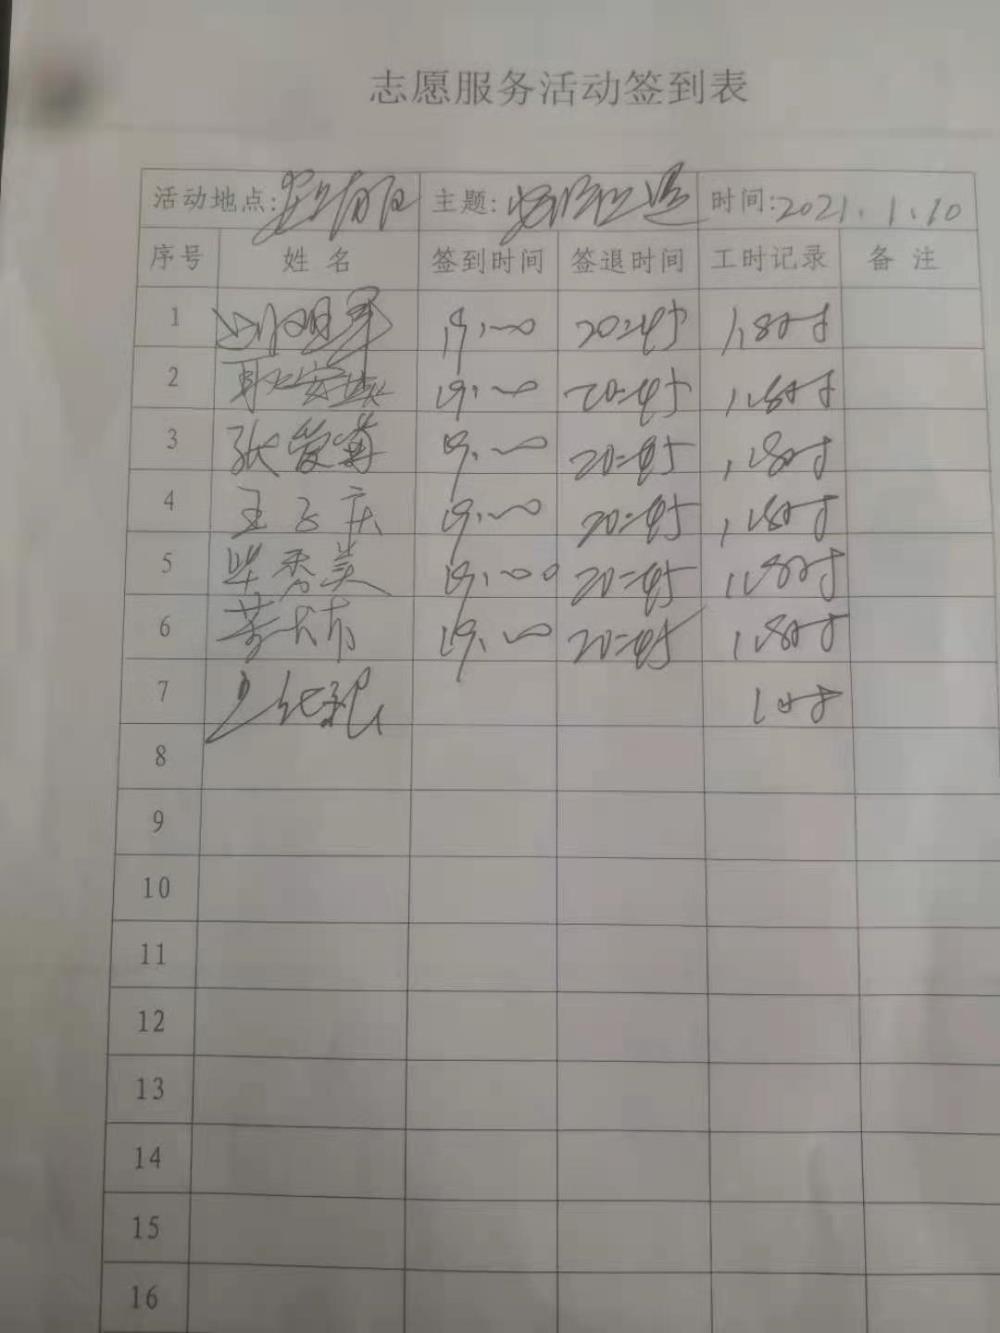 志愿服务活动签到表
活动地点: 主题: 时间:2021.1.10
序号 姓名 签到时间 签退时间 工时记录 备注
1 19:00 20:45 1.8时
2 19:00 20:45 1.8时
3 张爱菊 19:00 20:45 1.8时
4 王子庆 19:00 20:45 1.8时
5 毕秀美 19:00 20:45 1.8时
6 19:00 20:45 1.8时
7 1时
8
9
10
11
12
13
14
15
16